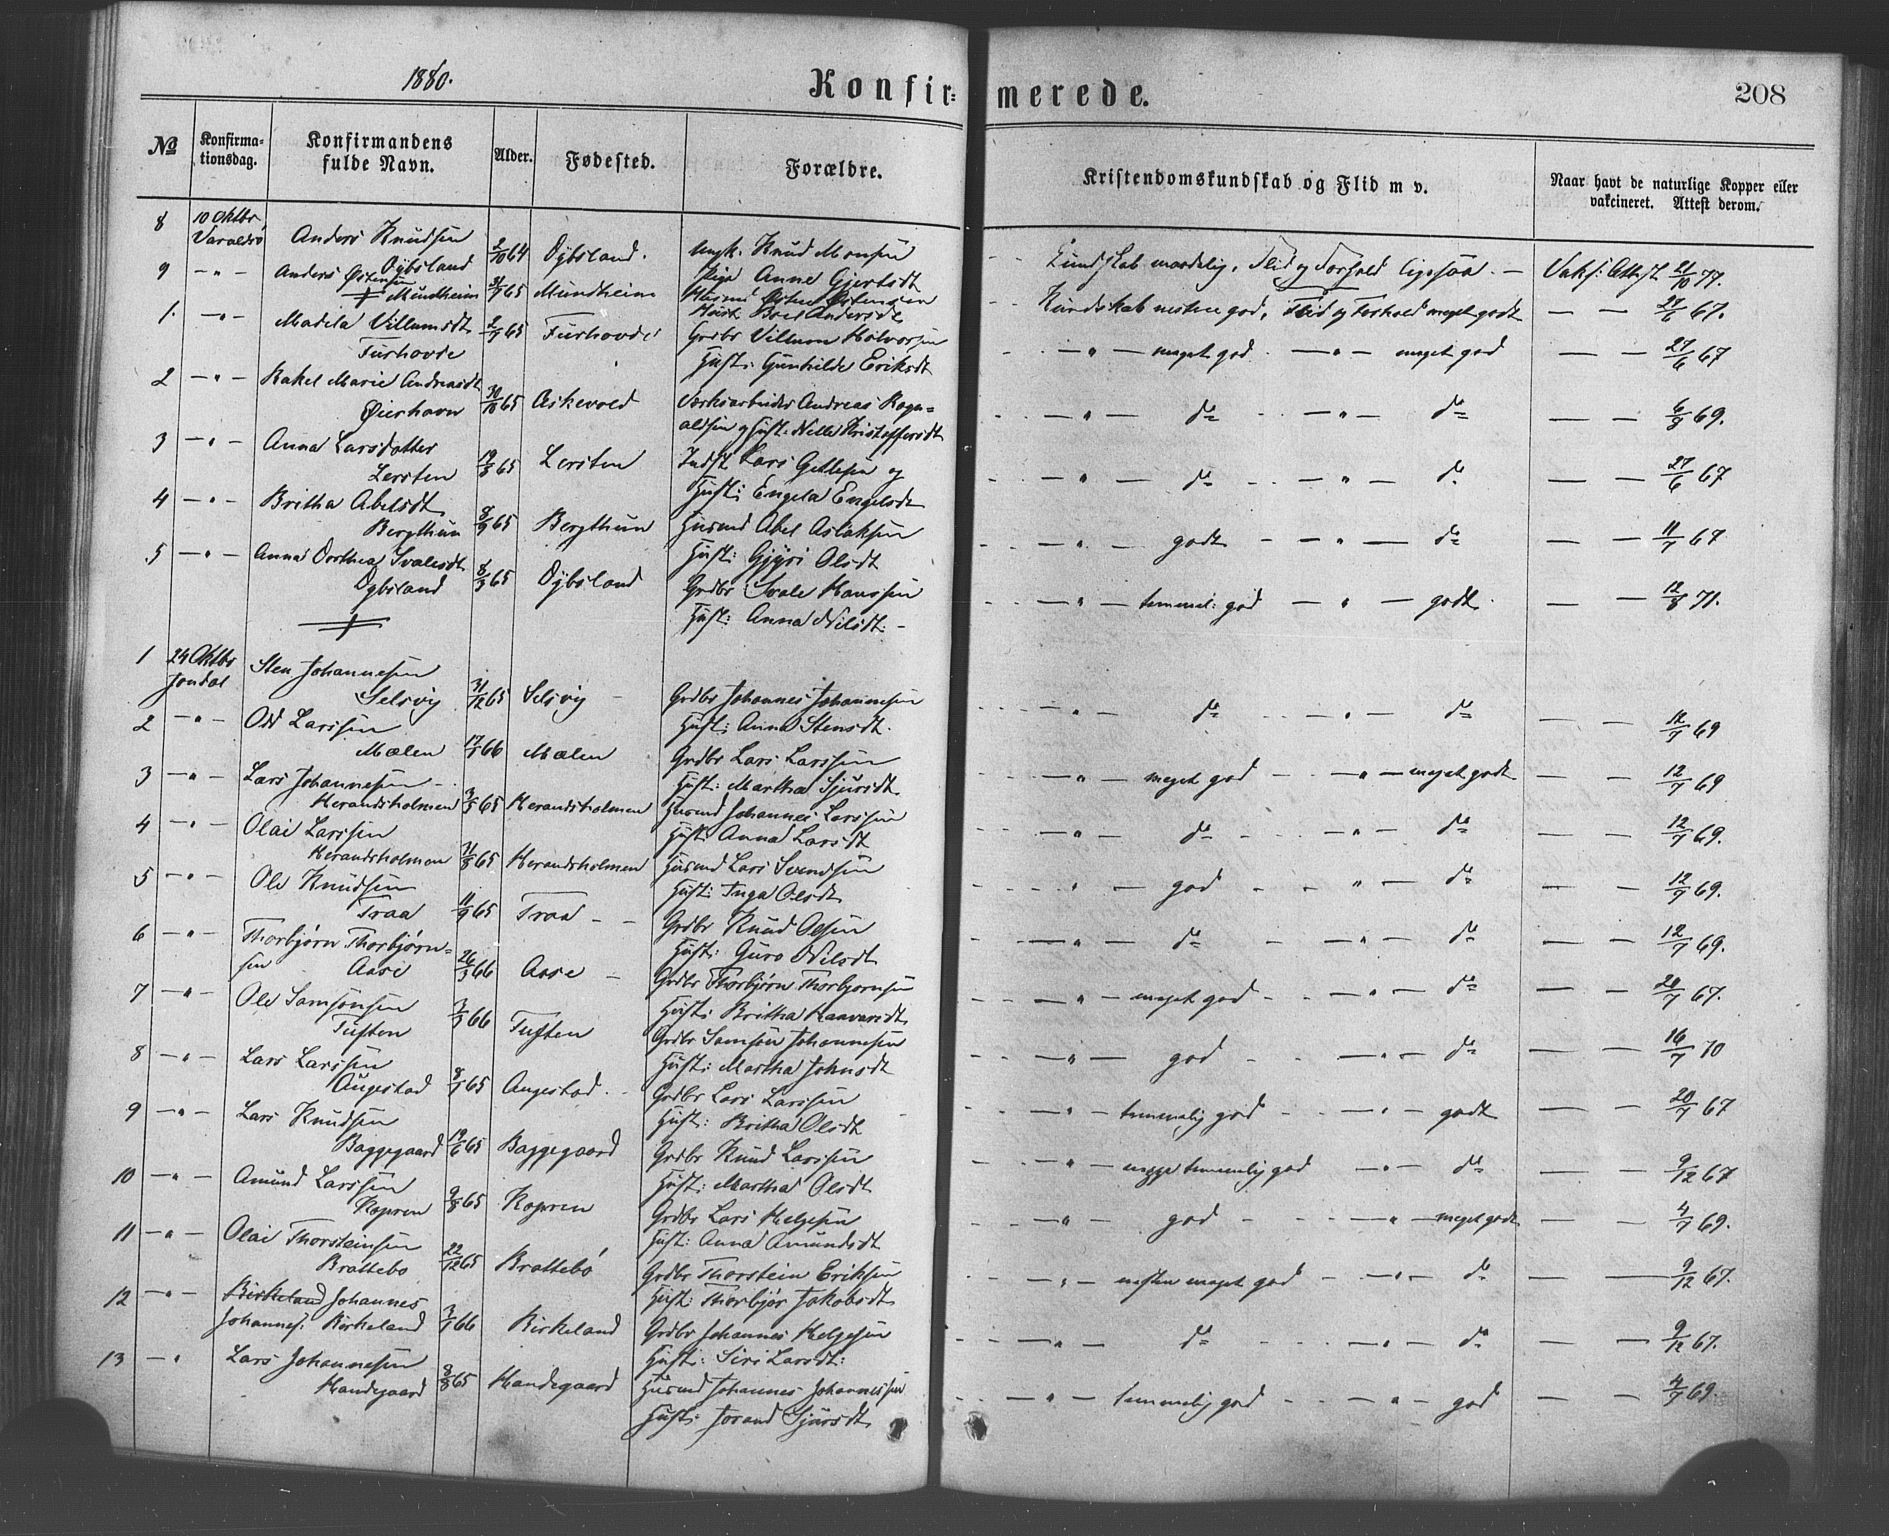 1880.
Konfir= merede. 208
No
Konfirma-
tionsdag.
Konfirmandens
fulde Navn.
Alder.
Fødested.
Forældre.
Kristendomskundskab og Flid m v.
Naar havt de naturlige Kopper eller
vakcineret. Attest derom.
8 10 Oktbr Anders Knudsen 2/10 64 Ungk. Knud Monsen
Varaldsø Kundskab maadelig, Flid og Forhold ligesaa. — Vaks: Attest 21/10 77.
9 — " — Anders Østensen Mundheim 3/7 65 Mundheim Husmd Østen Østensen
Pige Anne Gjertsdt
Kundskab nesten god, Flid og Forhold meget godt — — 27/6 67.
1. — " — Madela Villumsdt 2/7 65 Furhovde Grdbr Villum Halvorsen
Furhovde Hust: Gunhilde Eriksdt — " — meget god — " — meget god — — 27/6 67
2 — " — Rakel Marie Andreasdt 30/10 65 Askevold Værksarbeider Andreas Rogn=
Øierhavn aldsen og Hust: Nille Kristoffersdt — " — do — " — do — — 6/8 69.
3 — " — Anna Larsdatter 19/8 65 Lersten Indst Lars Gitlesen og
Lersten Hust: Engela Engelsdt — " — do — " — do — — 27/6 67
4 — " — Britha Abelsdt 8/9 65 Bergthun Husmd Abel Aslaksen
Bergthun Hust: Gjyri Olsdt — " — godt — " — do — — 11/7 67
5 — " — Anna Dorthea Svalesdt 8/3 65 Grdbr Svale Hanssen
Hust: Anna Nilsdt. — " — temmel: god — " — godt — — 12/8 71.
1 24 Oktbr Sten Johannesen
Jondal Selsvig 31/12 65 Selsvig Grdbr Johannes Johannesen
Hust: Anna Stensdt. — " — do — " — do — — 12/7 69
2 — " — Odd Larssen
Mælen 17/1 66 Mælen Grdbr Lars Larssen
Hust: Martha Sjursdt. — " — meget god — " — meget godt — — 12/7 69
3 — " — Lars Johannesen
Herandsholmen 3/5 65 Herandsholmen Husmd Johannes Larssen
Hust: Anna Larsdt — " — do — " — do — — 12/7 69.
4 — " — Olai Larssen
Herandsholmen 31/8 65 Herandsholmen Husmd Lars Svendsen
Hust: Inga Olsdt. — " — god — " — do — — 12/7 69.
5 — " — Ole Knudsen
Traa 11/9 65 Traa Grdbr Knud Olsen
Hust: Guro Nilsdt — " — do — " — do — — 12/7 69.
6 — " — Thorbjørn Thorbjørn=
sen Aase 26/3 66 Aase Grdbr Thorbjørn Thorbjørnsen
Hust: Britha Haavardt. — " — meget god — " — do — — 20/7 67.
7 — " — Ole Samsonsen
Tuften 3/3 66 Tuften Grdbr Samson Johannesen
Hust: Martha Johnsdt — " — god — " — do — — 16/7 70
8 — " — Lars Larssen
Augestad 8/7 65 Augestad Grdbr Lars Larssen
Hust: Britha Olsdt — " — temmelig god — " — godt — — 20/7 67
9 — " — Lars Knudsen
Baggegaard 19/6 65 Baggegaard Grdbr Knud Larssen
Hust: Martha Olsdt — " — temmelig god — " — do — — 9/12 67
10 — " — Amund Larssen
Kopren 9/8 65 Kopren Grdbr Lars Helgesen
Hust: Anna Amundsdt — " — god — " — meget godt — — 4/7 69.
11 — " — Olai Thorsteinsen
Brattebø 22/12 65 Brattebø Grdbr Thorstein Eriksen
Hust: Thorbjør Jakobsdt — " — nesten meget god — " — do — — 9/12 67.
12 — " — Birkeland Johannes
Johannes. Birkeland 3/1 66 Birkeland Grdbr Johannes Helgesen
Hust: Siri Larsdt: — " — do — " — do — — 9/12 67.
13 — " Lars Johannesen
Handegaard 8/8 65 Handegaard Husmd Johannes Johannessen
Hust: Jorand Sjursdt. — " — temmelig god — " — god — — 4/7 69.